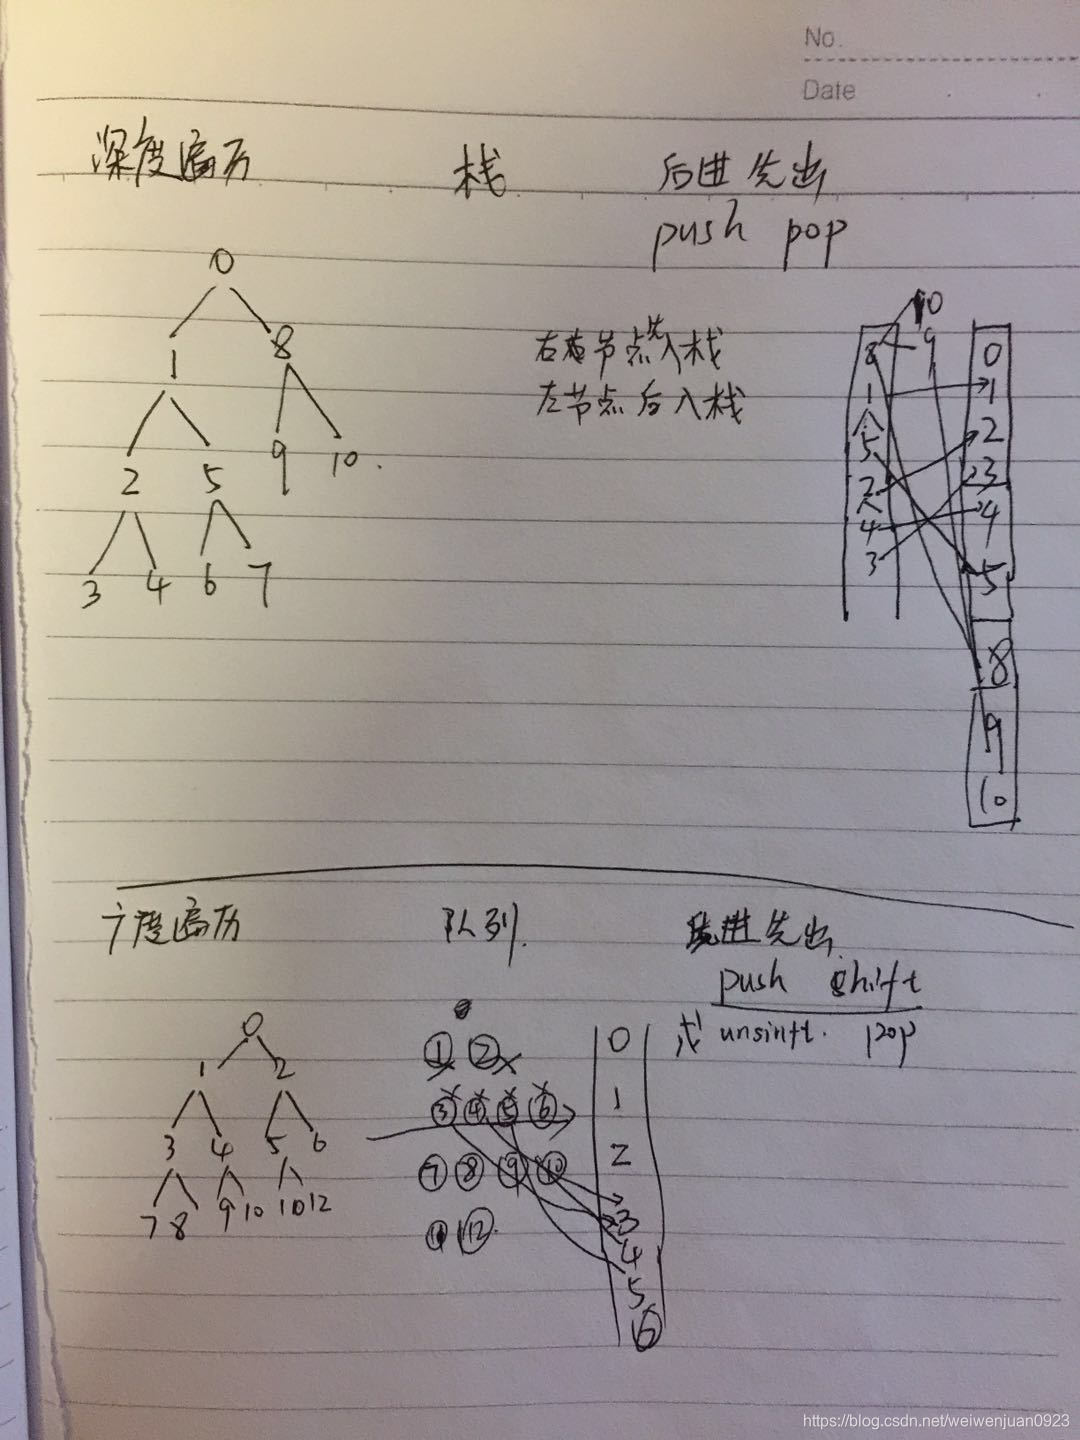 No.
Date
深度遍历 栈 后进先出
push pop
0
1 8
2 5 9 10.
3 4 6 7
右节点先入栈
左节点后入栈
10
8 9
1
5
2
4
3
0
1
2
3
4
5
8
9
10
广度遍历 队列. 先进先出
push shift
或 unsinft. pop
0
1 2
3 4 5 6
7 8 9 10 10 12
① ②
③ ④ ⑤ ⑥
⑦ ⑧ ⑨ ⑩
⑪ ⑫
0
1
2
3
4
5
6
https://blog.csdn.net/weiwenjuan0923